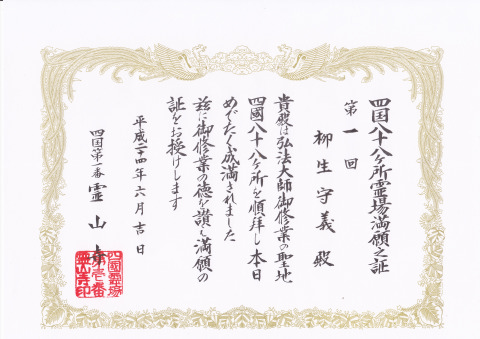 四国八十八ヶ所霊場満願之証
第一回
柳生守義殿
貴殿は弘法大師御修業の聖地
四國八十八ヶ所を順拝し本日
めでたく成満されました
茲に御修業の徳を讃え満願の
証をお授けします
平成二十四年六月吉日
四国第一番 霊山寺
四國霊場
第壱番
霊山寺印